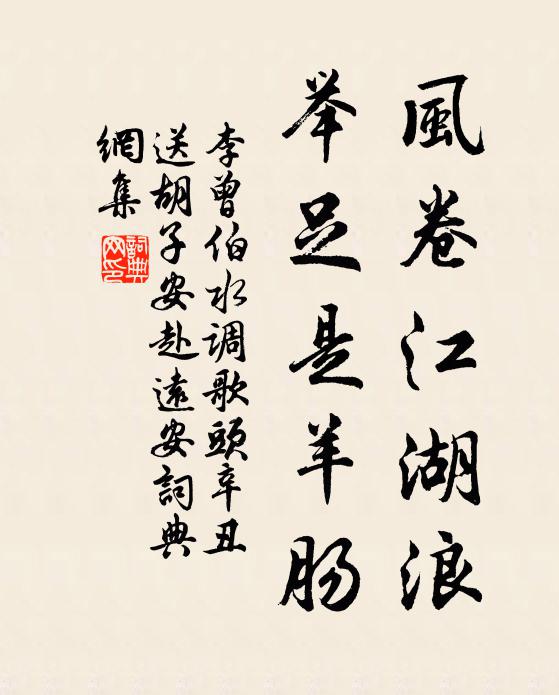 風卷江湖浪
举足是羊肠
李曾伯水调歌頭辛丑
送胡子安赴遠安詞典
網集
詞典
网印